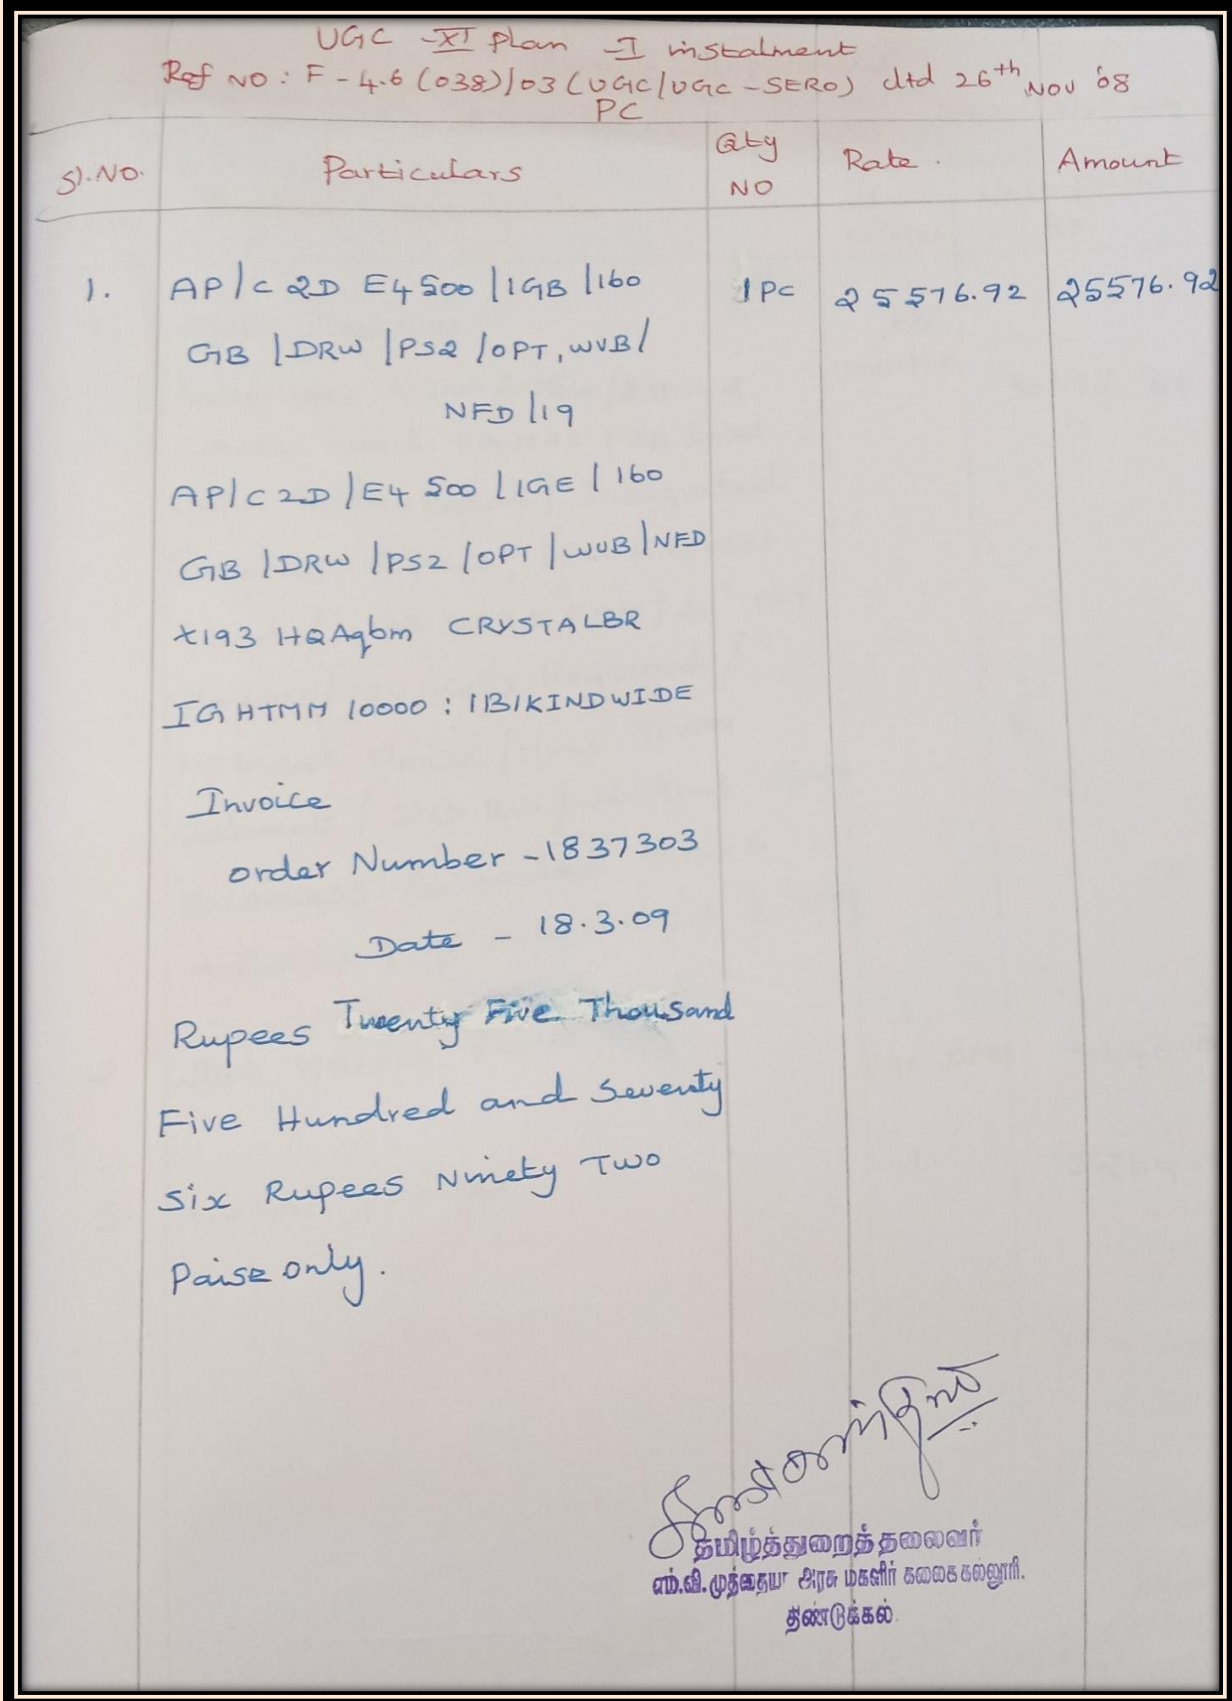 UGC -XI plan -I instalment
Ref NO : F - 4.6 (038)/03 (UGC/UGC - SERO) dtd 26th Nov '08
PC
Sl.No. Particulars Qty NO Rate. Amount
1. AP/C 2D E4500/1GB/160 1PC 25576.92 25576.92
GB/DRW/PS2/OPT, WUB/
NFD/19
AP/C2D/E4500/1GE/160
GB/DRW/PS2/OPT/WUB/NFD
X193 HQAqbm CRYSTALBR
IGHTMM 10000 : 1B/KINDWIDE
Invoice
order Number - 1837303
Date - 18.3.09
Rupees Twenty Five Thousand
Five Hundred and Seventy
Six Rupees Ninety Two
Paise only.
தமிழ்த்துறைத்தலைவர்
எம்.வி.முத்தையா அரசு மகளிர் கலைக்கல்லூரி.
திண்டுக்கல்.